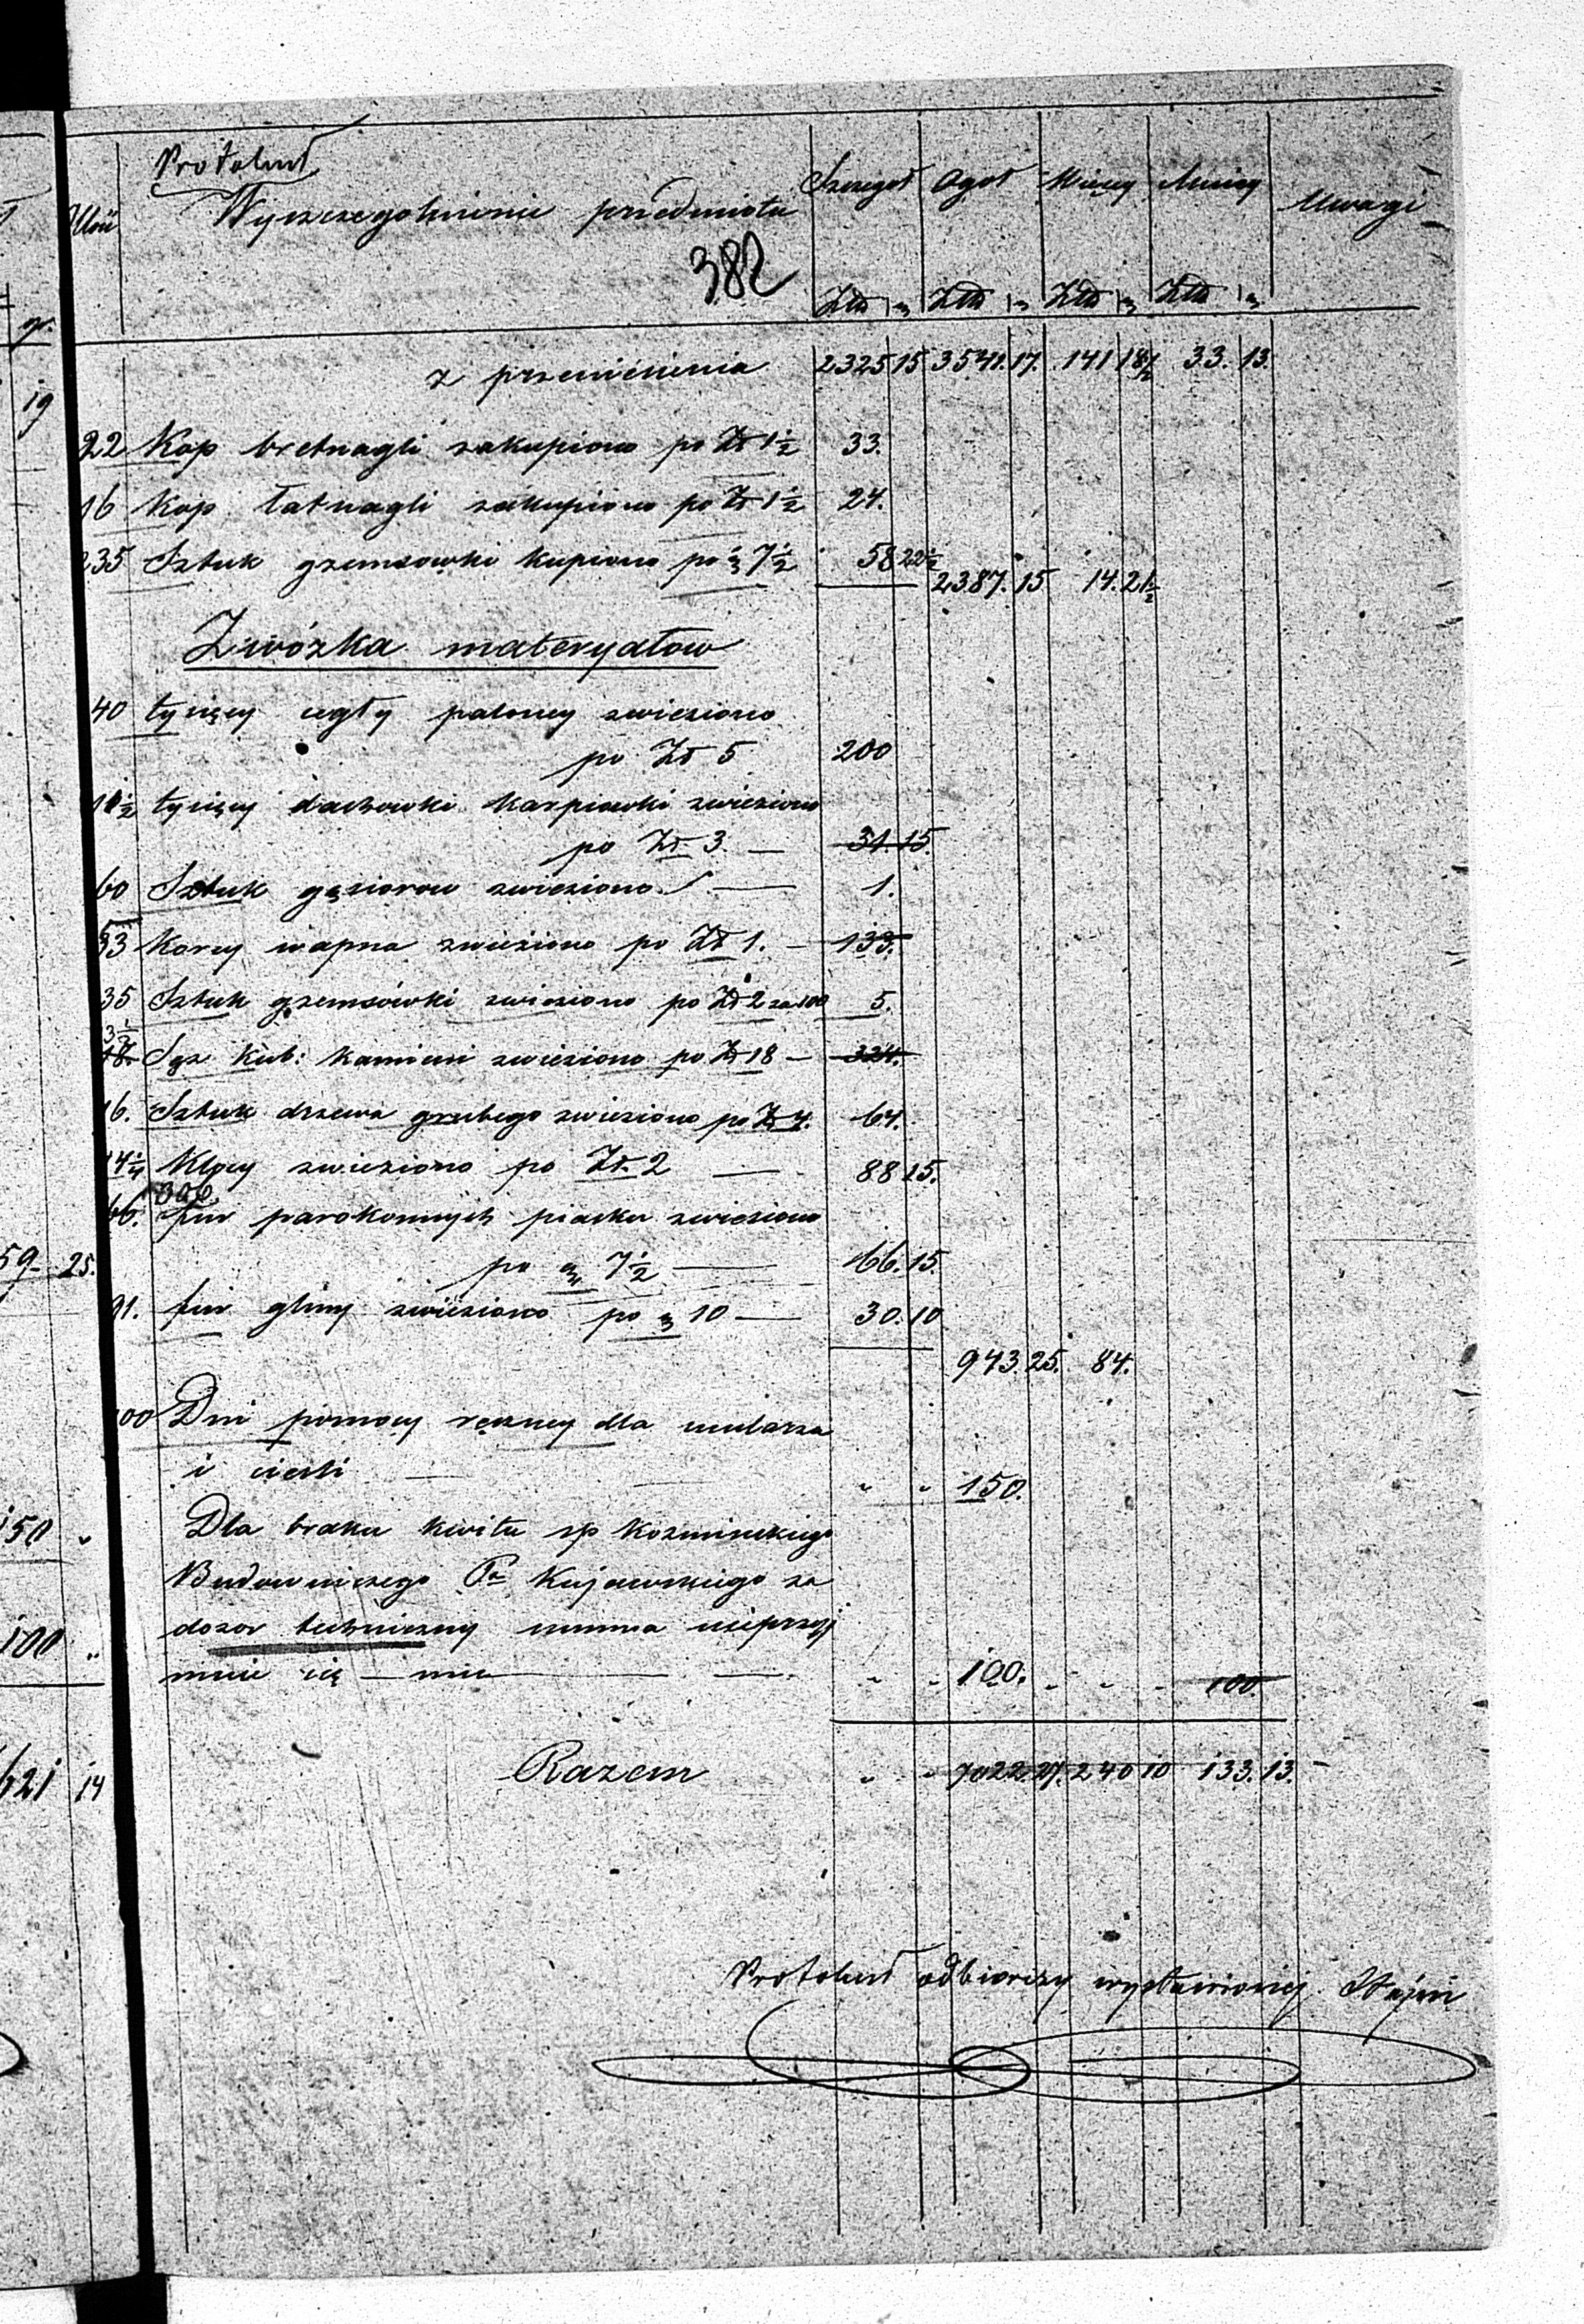 Protokuł
Ilość Wyszczegolnienie przedmiotu Szczegoł Ogoł Więcey Mniey Uwagi
382
Złt gr Złt gr Złt gr Złt gr
gr.
z przeniesienia 2325 15 3541. 17. 141 18½ 33. 13.
19
22 Kop bretnagli zakupiono po Zł 1½ 33.
16 Kop łatnagli zakupiono po Zł 1½ 24.
235 Sztuk gzemsowki kupiono po gr 7½ 58 22½
2387. 15 14. 21½
Zwózka materyałow
40 tysięcy cegły paloney zwieziono
po Zł 5 200
10½ tysięcy dachowki karpiowki zwieziono
po Zł. 3. — 31. 15.
60 Sztuk gąsiorow zwieziono — 1.
33 Korcy wapna zwieziono po Zł 1. — 133.
35 Sztuk gzemsówki zwieziono po Zł 2 za 100 5.
18. Sąż. kub: kamieni zwieziono po Zł 18 — 324.
16. Sztuk drzewa grubego zwieziono po Zł 4. 64.
44¼ Klocy zwieziono po Zł. 2 — 88 15.
66. fur parokonnych piasku zwieziono
59 25. po gr 7½ — 66. 15.
91. fur gliny zwieziono po gr 10 — 30. 10
943. 25. 84.
100 Dni pomocy ręczney dla mularza
i cieśli — " " 150.
Dla braku kwitu sp Kozminskiego
150 " Budowniczego Ptu Kujawskiego za
100 " dozor techniczny summa nieprzyj
muie się — — — " " 100. " " " 100.
621 14 Razem " " 7022. 27. 240 10 133. 13. –
Protokuł odbiorczy wystawionej Stajni